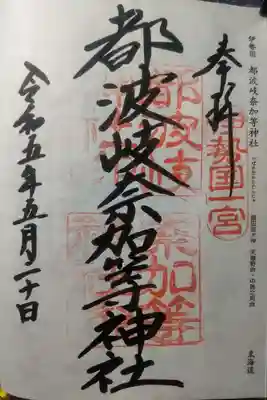 伊勢国 都波岐奈加等神社
奉拝
伊勢国一宮
都波岐
奈加等
都波岐奈加等神社
令和五年五月二十日
東海道